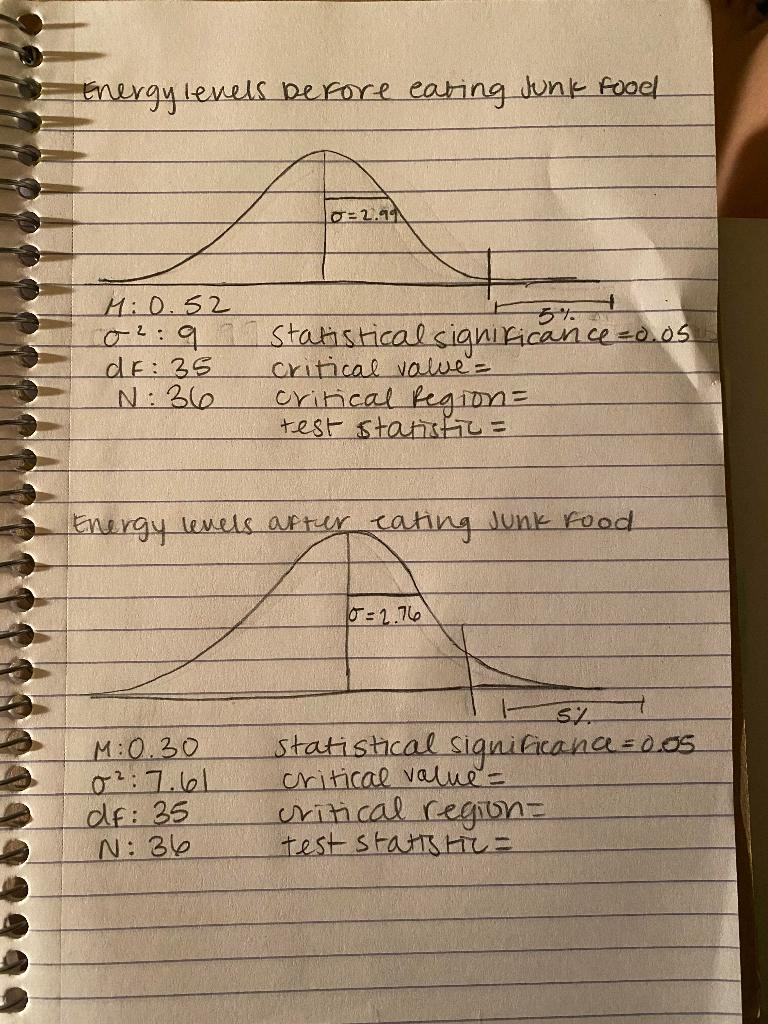 Energy levels before eating Junk Food
σ=2.99
5%
M: 0.52
σ²: 9 Statistical significance=0.05
df: 35 critical value=
N: 36 critical Region=
test statistic=
Energy levels after eating Junk Food
σ=2.76
5%
M: 0.30 Statistical significance=0.05
σ²: 7.61 critical value=
df: 35 critical region=
N: 36 test statistic=